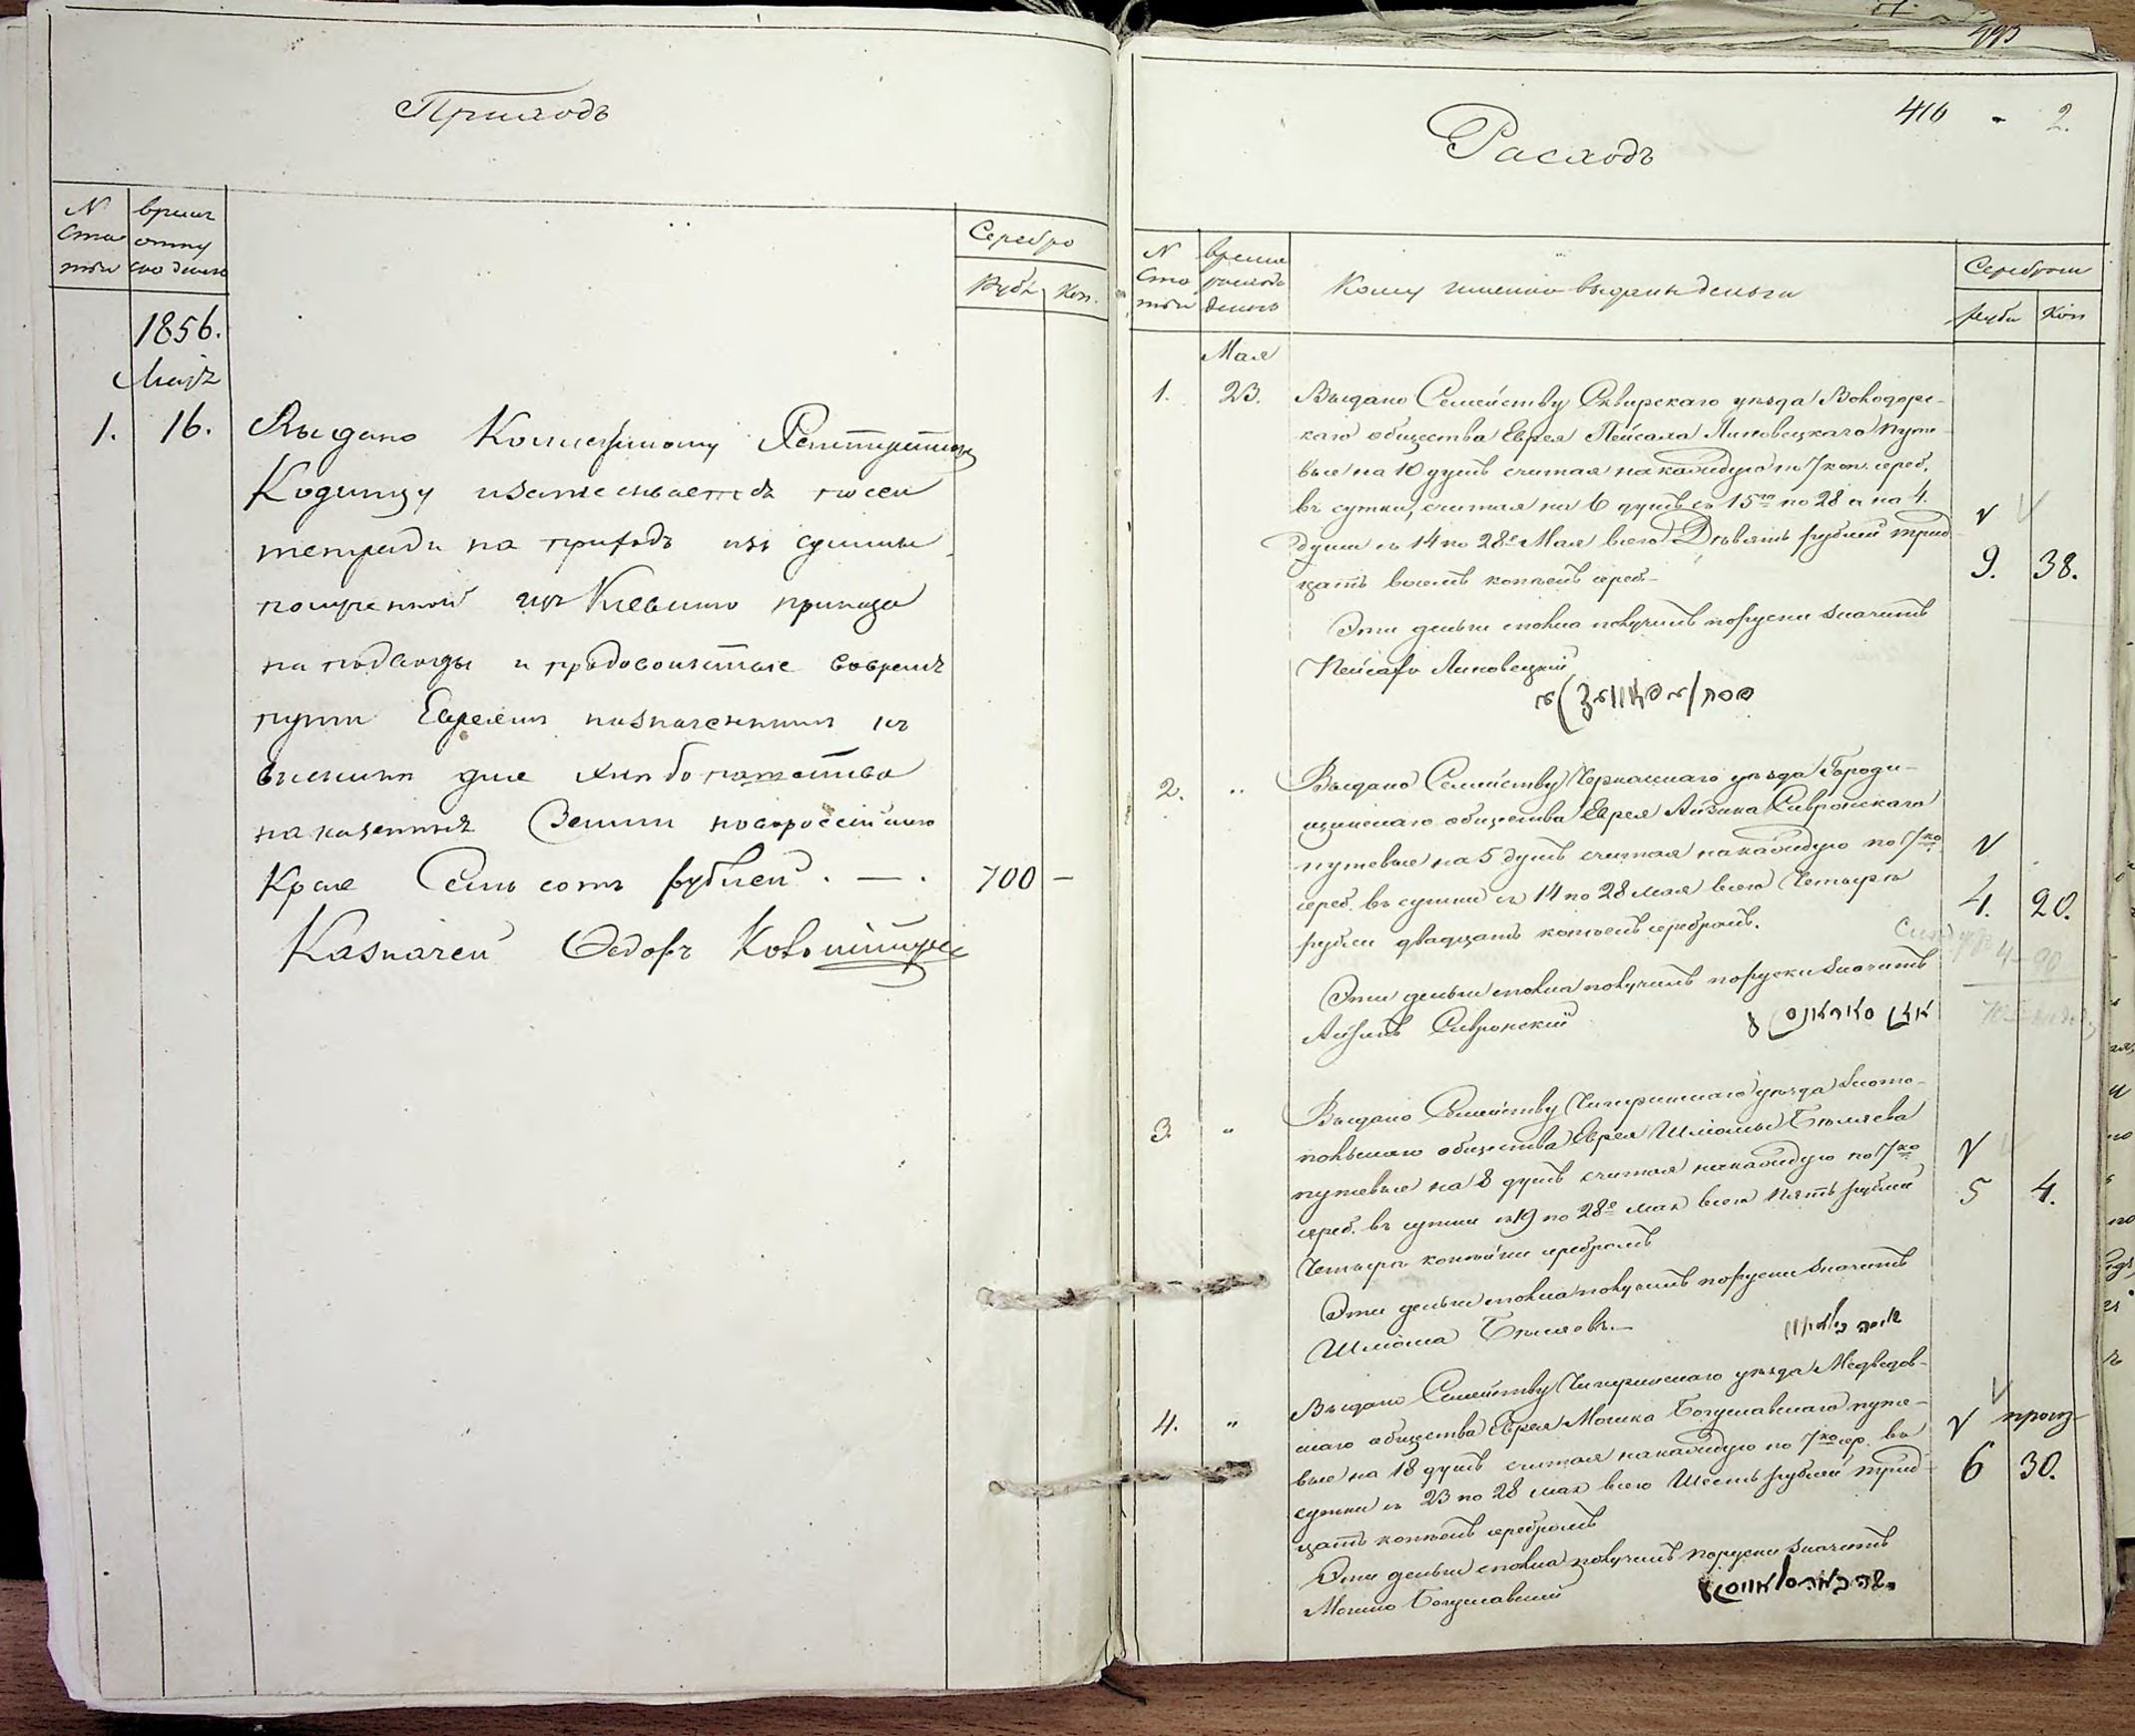 Приходъ
N
Ста
тьи
время
1856.
Маія
Серебро
Рубл Коп.
1. 16. Выдано Коллежскому Регистратору
Кодинцу и записывается по сей
тетради на приходъ изъ суммы
полученной изъ Киевскаго приказа
на подводы и продовольствіе вовремя
пути Евреямъ назначеннымъ къ
высылке для хлебопашества
на казенныя Земли новороссійскаго
Края Семь сотъ рублей . — . 700 —
Казначей Федоръ
493
416 - 2.
Расходъ
N
Ста
тьи
время
расхода
денегъ
Кому именно выданы деньги
Серебромъ
рубли Коп
Мая
1. 23. Выдано Семейству Сквирскаго уезда Володарс-
каго общества Еврея Пейсаха Липовецкаго Путе-
вые на 10 душъ считая на каждую по 7 коп. сереб.
въ сутки, считая на 6 душъ съ 15го по 28 и на 4.
души съ 14 по 28е Мая всего Девять рублей трид
цать восемь копеекъ сереб- 9. 38.
Эти деньги сполна получилъ поруски значитъ
Пейсахъ Липовецкий
2. " Выдано Семейству Черкасскаго уезда Городи-
щенскаго общества Еврея Айзика Савронскаго
путевые на 5 душъ считая на каждую по 7 ко
сереб. въ сутки съ 14 по 28 мая всего Четыре
рубли двадцать копеекъ серебромъ. 4. 20.
4-90
Эти деньги сполна получилъ поруски значитъ
Айзикъ Савронский
3. " Выдано Семейству Чигиринскаго уезда Злато-
польскаго общества Еврея Шліомы Беляева
путевые на 8 душъ считая на каждую по 7 ко
сереб. въ сутки съ 19 по 28е мая всего Пять рублей
Четыре копейки серебромъ 5 4.
Эти деньги сполна получилъ поруски значитъ
Шліома Беляевъ.—
4. " Выдано Семейству Чигиринскаго уезда Медведов-
скаго общества Еврея Мошка Богуславскаго путе-
вые на 18 душъ считая на каждую по 7 ко сер. въ
сутки съ 23 по 28 мая всего Шесть рублей трид-
цать копеекъ серебромъ 6 30.
Эти деньги сполна получилъ поруски значитъ
Мошко Богуславский